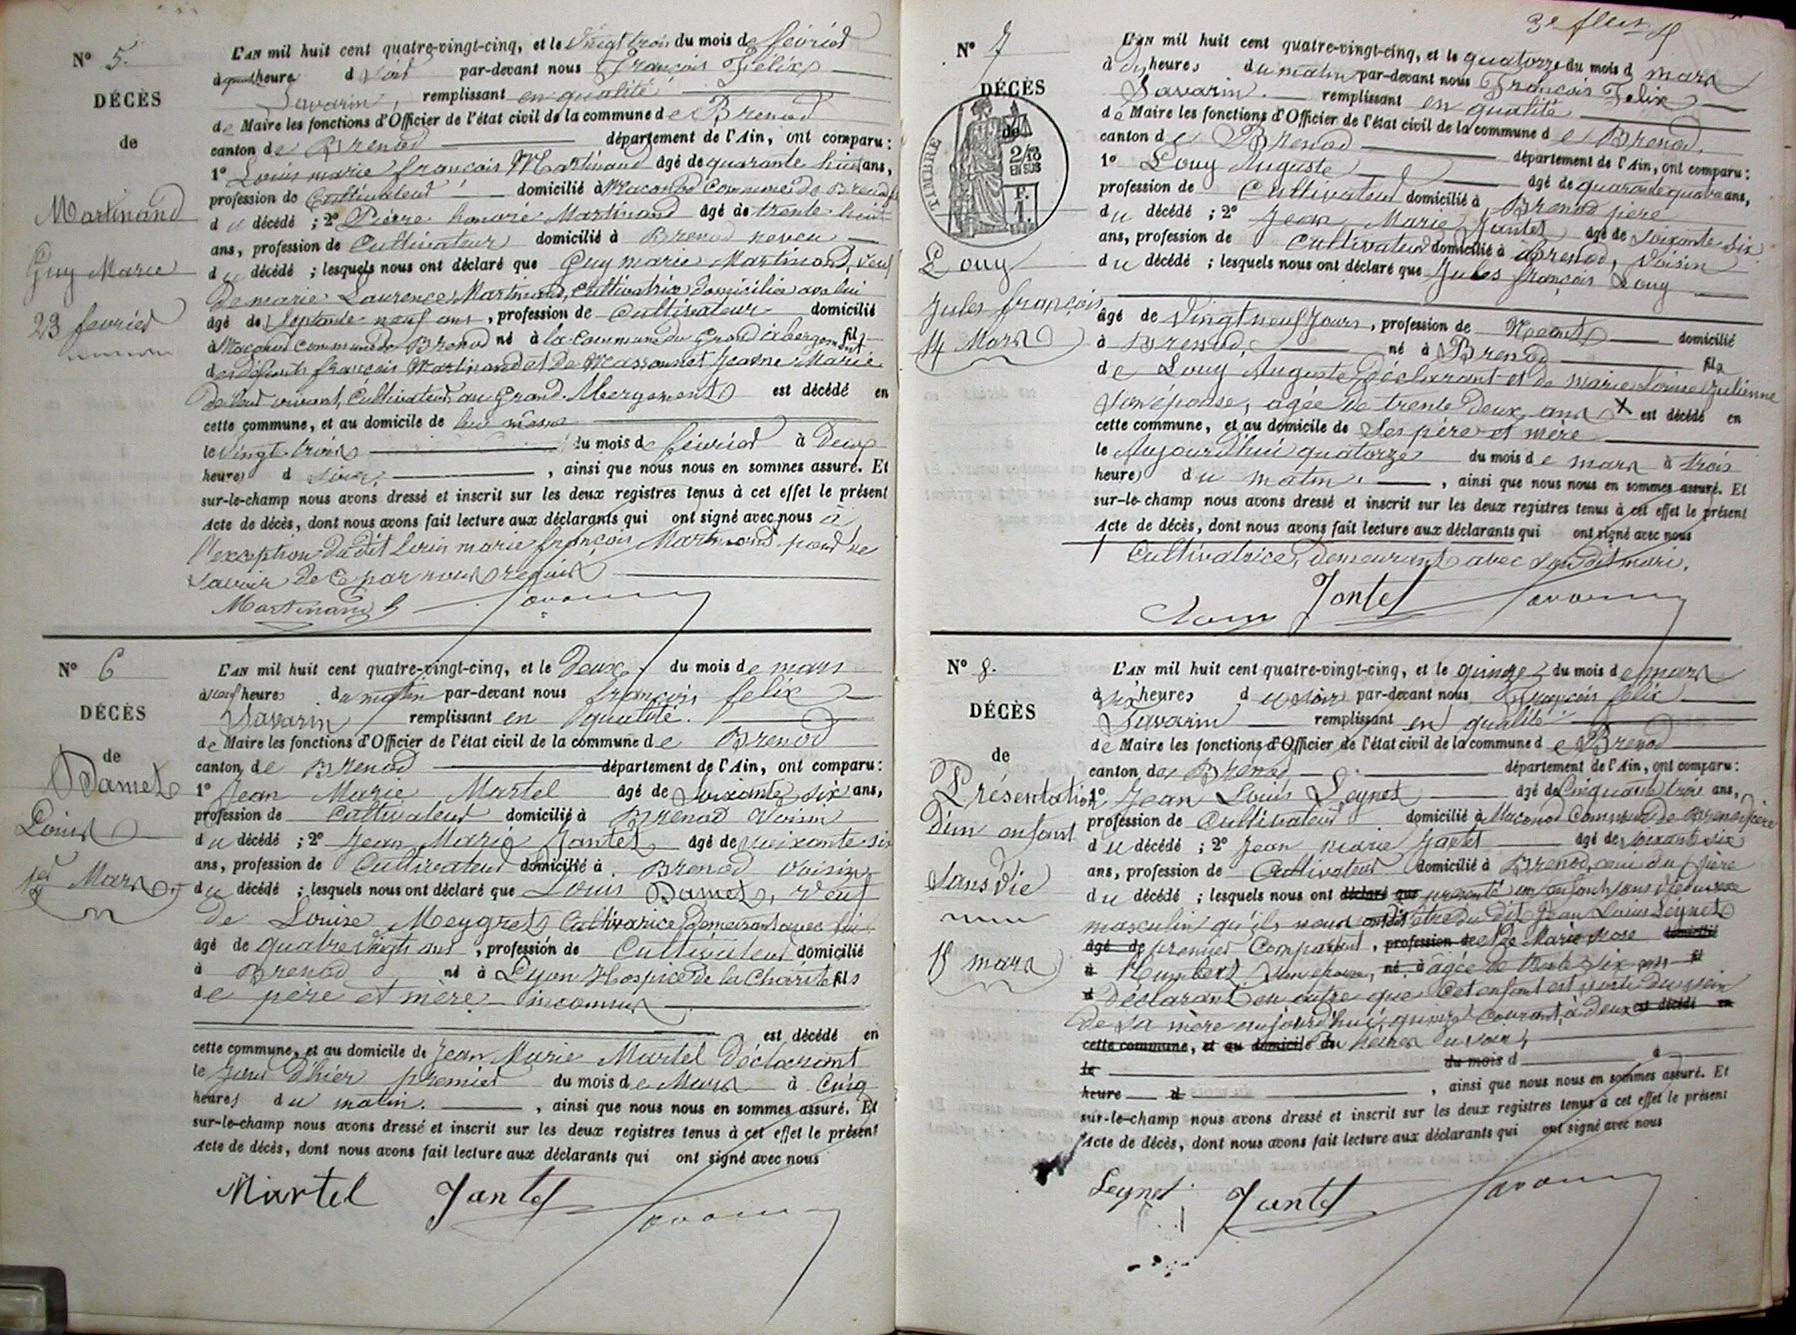 Nº 5.
DÉCÈS
de
Martinand
Guy Marie
23 fevrier
L'AN mil huit cent quatre-vingt-cinq, et le vingt trois du mois de février
à heure du soir par-devant nous François Felix
Savarin, remplissant en qualité
de Maire les fonctions d'Officier de l'état civil de la commune de Brenod
canton de Brenod département de l'Ain, ont comparu :
1º Louis marie françois Martinand âgé de quarante huit ans,
profession de Cultivateur domicilié à Maconod Commune de Brenod
du décédé ; 2º Pierre honoré Martinand âgé de trente huit
ans, profession de Cultivateur domicilié à Brenod neveu
du décédé ; lesquels nous ont déclaré que Guy marie Martinand, veuf
de marie Laurence Martinand, cultivatrice domiciliée avec lui
âgé de septante neuf ans, profession de Cultivateur domicilié
à Maconod commune de Brenod né à la Commune du Grand abergement fils
des défunts françois Martinand et de Massonnet Jeanne Marie
de leur vivant, Cultivateurs au Grand Abergement est décédé en
cette commune, et au domicile de lui même
le vingt trois du mois de février à deux
heures du soir, , ainsi que nous nous en sommes assuré. Et
sur-le-champ nous avons dressé et inscrit sur les deux registres tenus à cet effet le présent
Acte de décès, dont nous avons fait lecture aux déclarants qui ont signé avec nous à
l'exception du dit Louis marie françois Martinand pour ne
savoir de ce par nous requis
Martinand h Savarin
Nº 6
DÉCÈS
de
Damet
Louis
1er Mars
L'AN mil huit cent quatre-vingt-cinq, et le Deux du mois de mars
à neuf heures du matin par-devant nous françois felix
Savarin remplissant en qualité.
de Maire les fonctions d'Officier de l'état civil de la commune de Brenod
canton de Brenod département de l'Ain, ont comparu :
1º Jean Marie Martel âgé de soixante six ans,
profession de Cultivateur domicilié à Brenod voisin
du décédé ; 2º Jean Marie Jantet âgé de soixante six
ans, profession de Cultivateur domicilié à Brenod voisin
du décédé ; lesquels nous ont déclaré que Louis Damet, veuf
de Louise Meygret Cultivatrice demeurant avec lui
âgé de quatre vingt ans, profession de Cultivateur domicilié
à Brenod né à Lyon Hospice de la Charité fils
de père et mère inconnus
est décédé en
cette commune, et au domicile de Jean Marie Martel déclarant
le jour d'hier premier du mois de Mars à Cinq
heures du matin. , ainsi que nous nous en sommes assuré. Et
sur-le-champ nous avons dressé et inscrit sur les deux registres tenus à cet effet le présent
Acte de décès, dont nous avons fait lecture aux déclarants qui ont signé avec nous
Martel Jantet Savarin
3e
Nº 7
DÉCÈS
de
TIMBRE
2/10
EN SUS
Louy
Jules françois
14 Mars
L'AN mil huit cent quatre-vingt-cinq, et le quatorze du mois d mars
à dix heures du matin par-devant nous François Felix
Savarin. remplissant en qualité
de Maire les fonctions d'Officier de l'état civil de la commune de Brenod.
canton de Brenod département de l'Ain, ont comparu :
1º Louy Auguste âgé de quarante quatre ans,
profession de Cultivateur domicilié à Brenod père
du décédé ; 2º Jean Marie Jantet âgé de soixante six
ans, profession de Cultivateur domicilié à Brenod, voisin
du décédé ; lesquels nous ont déclaré que Jules françois Louy
âgé de vingt neuf jours, profession de Neant domicilié
à Brenod, né à Brenod fils
de Louy Auguste déclarant et de marie Louise Julienne
son épouse, agée de trente deux ans X est décédé en
cette commune, et au domicile de ses père et mère
le Aujourd'hui quatorze du mois de mars à trois
heures du matin. , ainsi que nous nous en sommes assuré. Et
sur-le-champ nous avons dressé et inscrit sur les deux registres tenus à cet effet le présent
Acte de décès, dont nous avons fait lecture aux déclarants qui ont signé avec nous
+ Cultivatrice, demeurant avec son dit mari.
Louy Jantet Savarin
Nº 8.
DÉCÈS
de
Présentation
d'un enfant
sans vie
15 mars
L'AN mil huit cent quatre-vingt-cinq, et le quinze du mois de mars
à six heures du soir par-devant nous François felix
Savarin remplissant en qualité
de Maire les fonctions d'Officier de l'état civil de la commune de Brenod
canton de Brenod département de l'Ain, ont comparu :
1º Jean Louis Seynet âgé de Cinquante trois ans,
profession de Cultivateur domicilié à Maconod Commune de Brenod père
du décédé ; 2º Jean marie Jantet âgé de soixante six
ans, profession de Cultivateur domicilié à Brenod, ami du père
du décédé ; lesquels nous ont déclaré que présenté un enfant sans vie du sexe
masculin qu'ils nous ont dit être du dit Jean Louis Seynet
âgé de premier Comparant, profession de et de Marie Rose domicilié
à Humbert son épouse, né à âgée de trente six ans fils
d déclarant en outre que cet enfant est sorti du sein
de sa mère aujourd'hui, quinze courant, à deux est décédé en
cette commune, et au domicile de heures du soir,
le du mois d à
heure d , ainsi que nous nous en sommes assuré. Et
sur-le-champ nous avons dressé et inscrit sur les deux registres tenus à cet effet le présent
Acte de décès, dont nous avons fait lecture aux déclarants qui ont signé avec nous
Seynet Jantet Savarin